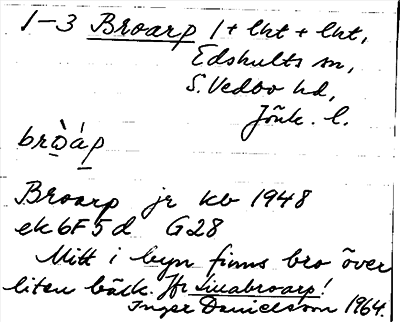 1-3 Broarp 1 + lht + lht,
Edshults sn,
S. Vedbo hd,
Jönk. l.
brò̱áp̱
Broarp jr kb 1948
ek 6F5d G28
Mitt i byn finns bro över
liten bäck. Jfr Linabroarp!
Inger Danielsson 1964.